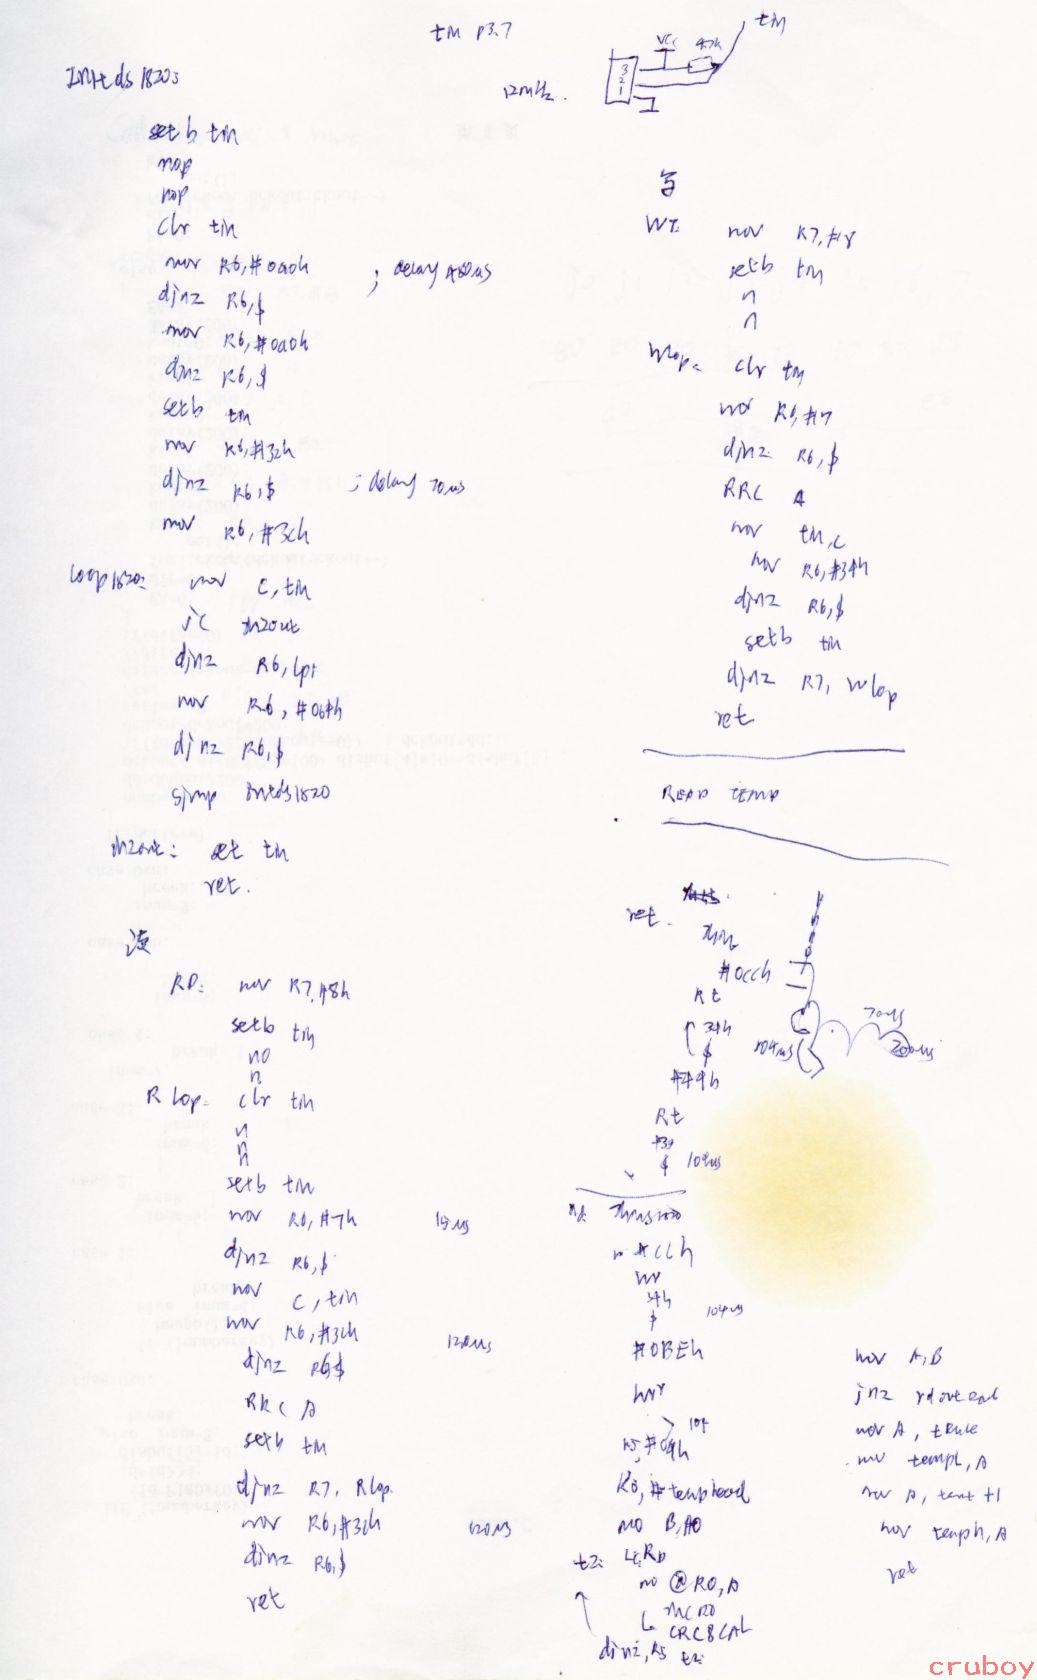 tM P3.7
tM
VCC 4.7k
3
2
1
12MHz.
Intds1820:
setb tM
nop
nop
clr tM
mov R6,#0a0h ; delay 480us
djnz R6,$
mov R6,#0a0h
djnz R6,$
setb tM
mov R6,#32h
djnz R6,$ ; delay 70us
mov R6,#3ch
loop1820: mov C,tM
jc
djnz R6,lp1
mov R6,#064h
djnz R6,$
sjmp intds1820
set tM
ret.
读
RD: mov R7,#8h
setb tM
no
n
R lop: clr tM
n
n
n
setb tM
mov R6,#7h 15us
djnz R6,$
mov C,tM
mov R6,#3ch 120us
djnz R6$
RRC A
setb tM
djnz R7, Rlop
mov R6,#3ch 120us
djnz R6,$
ret
写
WT: mov R7,#8
setb tM
n
n
Wlop: clr tM
mov R6,#7
djnz R6,$
RRC A
mov tM,C
mov R6,#34h
djnz R6,$
setb tM
djnz R7, wlop
ret
READ TEMP
ret.
#0CCh
Rt
34h
$
104us
70us
200us
#44h
Rt
$ 104us
#CCh
wr
34h
$ 104us
#0BEh
wr
> 104
R5,#09h
R0,#temphead
mo B,#0
t2: Lc RD
mo @R0,A
INC R0
Lc CRC8CAL
djnz,R5 t2:
mov A,B
jnz rdoutend
mov A,
mov templ,A
mov A, +1
mov temph,A
ret
cruboy